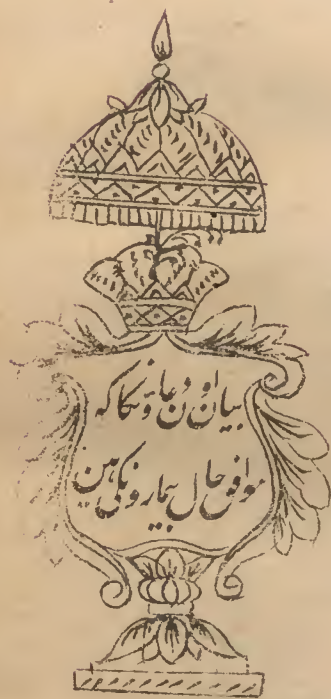 بیان اون دعاؤنکا که
موافق حال بیمارونکی هین